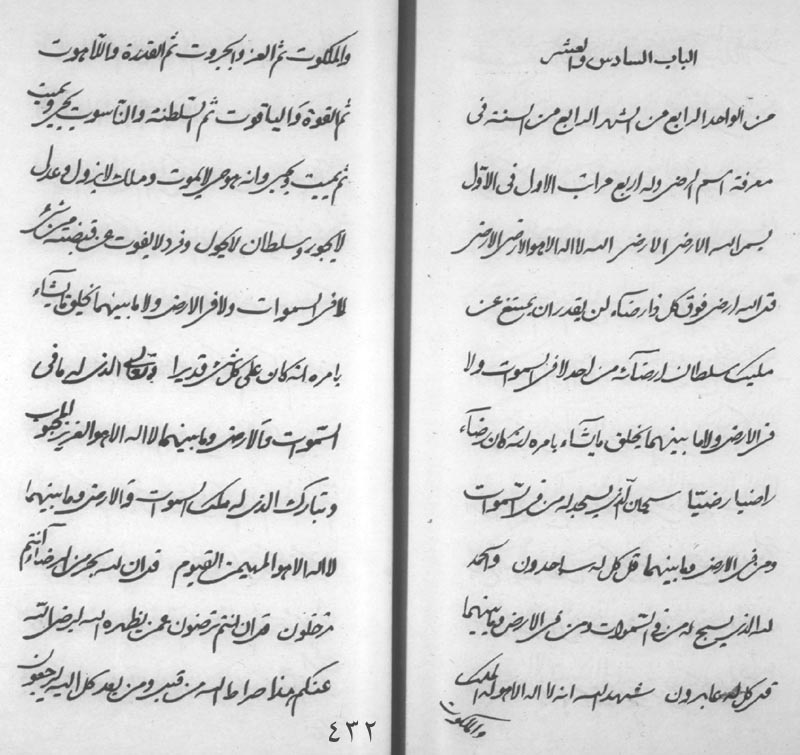 الباب السادس والعشر
من الواحد الرابع من الشهر الرابع من السنة فى
معرفة اسم الرضى وله اربع مراتب الاول فى الاول
بسم الله الارضى الارضى الله لا اله الا هو الارضى الارضى
قل الله ارضى فوق كل ذا رضاء لن يقدر ان يمتنع عن
مليك سلطان ارضائه من احد لا فى السموات ولا
فى الارض ولا ما بينهما يخلق ما يشاء بامره انه كان رضاء
راضيا رضيا سبحان الذى يسجد له من فى السموات
ومن فى الارض وما بينهما قل كل له ساجدون والحمد
لله الذى يسبح له من فى السموات ومن فى الارض وما بينهما
قل كل له عابدون شهد الله انه لا اله الا هو له الملك
والملكوت
والملكوت ثم العز والجبروت ثم القدرة واللاهوت
ثم القوة والياقوت ثم السلطنة والناسوت يحيى ويميت
ثم يميت ويحيى وانه هو حى لا يموت وملك لا يزول وعدل
لا يجور وسلطان لا يحول وفرد لا يفوت عن قبضته من شئ
لا فى السموات ولا فى الارض ولا ما بينهما يخلق ما يشاء
بامره انه كان على كل شئ قديرا وتعالى الذى له ما فى
السموات والارض وما بينهما لا اله الا هو العزيز المحبوب
وتبارك الذى له ملك السموات والارض وما بينهما
لا اله الا هو المهيمن القيوم قل ان لله بحر من الرضاء انتم
تدخلون قل ان انتم ترضون عمن يظهره الله ليرضى الله
عنكم هذا صراط الله من قبل ومن بعد كل اليه ليرجعون
٤٣٢